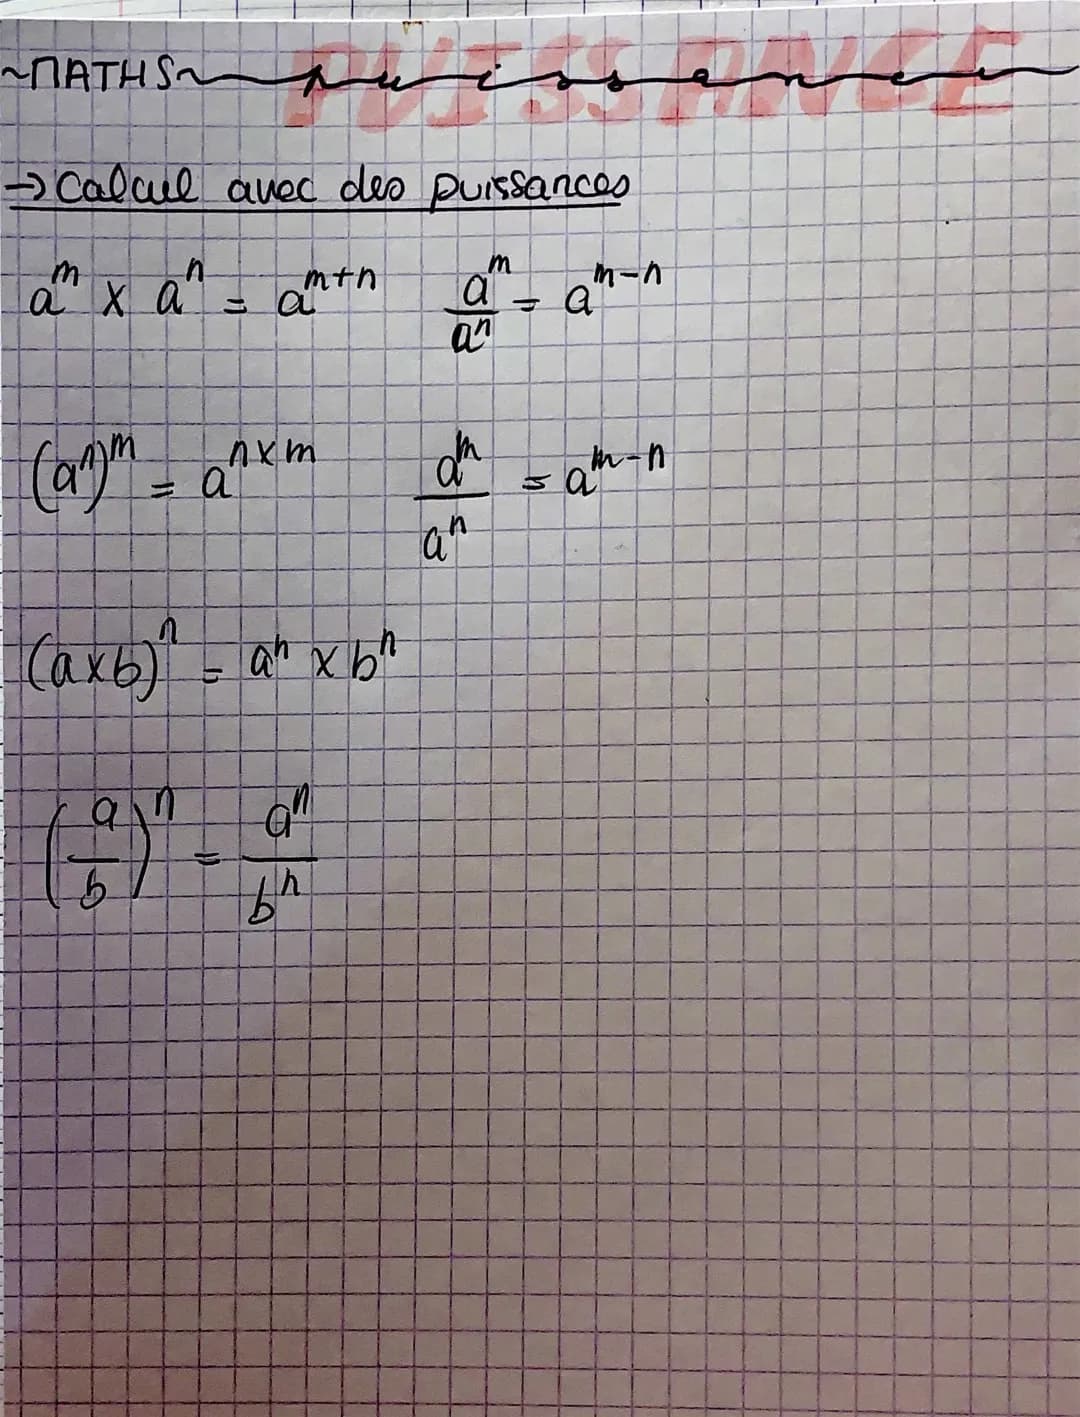 ~MATHS~ puissance PUISSANCE
→ Calcul avec des puissances
a^m x a^n = a^{m+n} a^m/a^n = a^{m-n}
(a^n)^m = a^{n x m} a^m/a^n = a^{m-n}
(a x b)^n = a^n x b^n
(a/b)^n = a^n/b^n